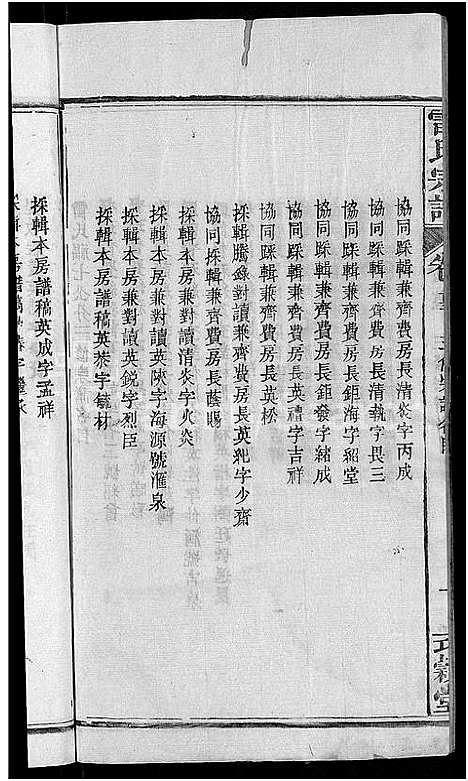 雷氏宗譜
卷
協同採輯兼齊費房長清炎字丙成
協同採輯兼齊費房長清執字畏三
協同採輯兼齊費房長鉅海字貂堂
協同採輯兼齊費房長鉅發字緒成
協同採輯兼齊費房長英禮字吉祥
協同採輯兼齊費房長英松
採輯謄錄對讀兼齊費房長英紀字少齋
協同採輯兼齊費房長蔭賜
採輯本房譜稿兼對讀清炎字火炎
採輯本房譜稿兼對讀英陝字海源號滙泉
採輯本房兼對讀英銳字烈臣
採輯本房譜稿英恭字毓材
採輯本房譜稿英成字孟祥
採輯本房譜稿
式穀堂